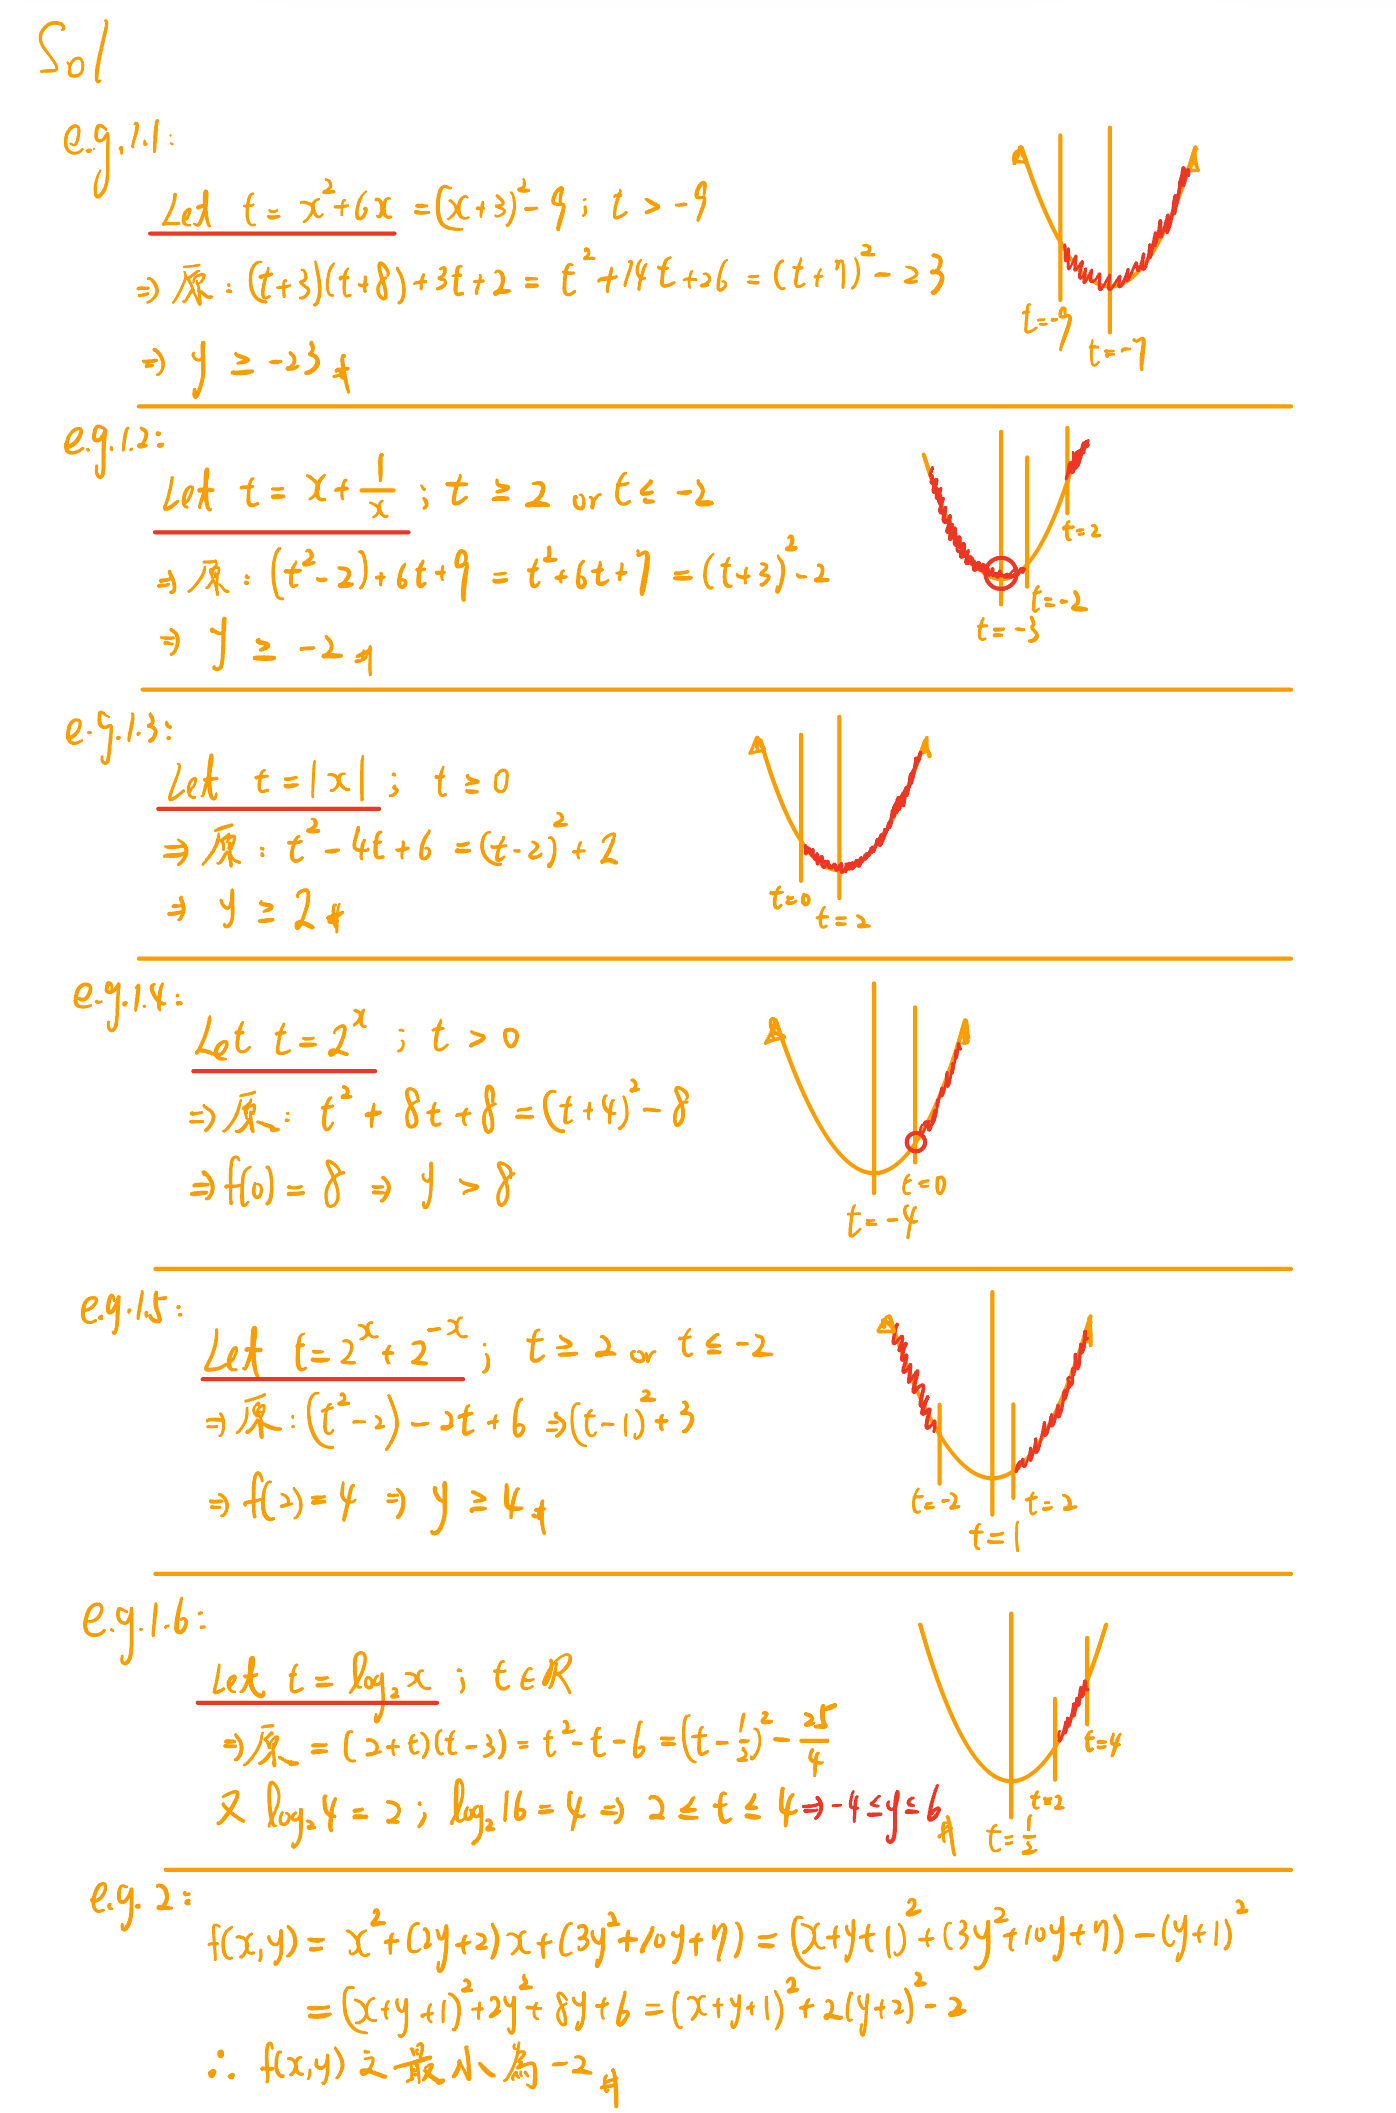 Sol
e.g.1.1:
Let t = x²+6x = (x+3)²-9 ; t > -9
⇒ 原 : (t+3)(t+8)+3t+2 = t²+14t+26 = (t+7)²-23
⇒ y ≥ -23 #
t=-9
t=-7
e.g.1.2:
Let t = x + 1/x ; t ≥ 2 or t ≤ -2
⇒ 原 : (t²-2)+6t+9 = t²+6t+7 = (t+3)²-2
⇒ y ≥ -2 #
t=2
t=-2
t=-3
e.g.1.3:
Let t = |x| ; t ≥ 0
⇒ 原 : t²-4t+6 = (t-2)²+2
⇒ y ≥ 2 #
t=0
t=2
e.g.1.4:
Let t = 2^x ; t > 0
⇒ 原 : t²+8t+8 = (t+4)²-8
⇒ f(0) = 8 ⇒ y > 8
t=0
t=-4
e.g.1.5:
Let t = 2^x + 2^-x ; t ≥ 2 or t ≤ -2
⇒ 原 : (t²-2)-2t+6 ⇒ (t-1)²+3
⇒ f(2) = 4 ⇒ y ≥ 4 #
t=-2
t=2
t=1
e.g.1.6:
Let t = log₂x ; t ∈ R
⇒ 原 = (2+t)(t-3) = t²-t-6 = (t-1/2)²-25/4
又 log₂4 = 2 ; log₂16 = 4 ⇒ 2 ≤ t ≤ 4 ⇒ -4 ≤ y ≤ 6 #
t=4
t=2
t=1/2
e.g. 2:
f(x,y) = x²+(2y+2)x+(3y²+10y+7) = (x+y+1)²+(3y²+10y+7)-(y+1)²
= (x+y+1)²+2y²+8y+6 = (x+y+1)²+2(y+2)²-2
∴ f(x,y) 之最小為 -2 #